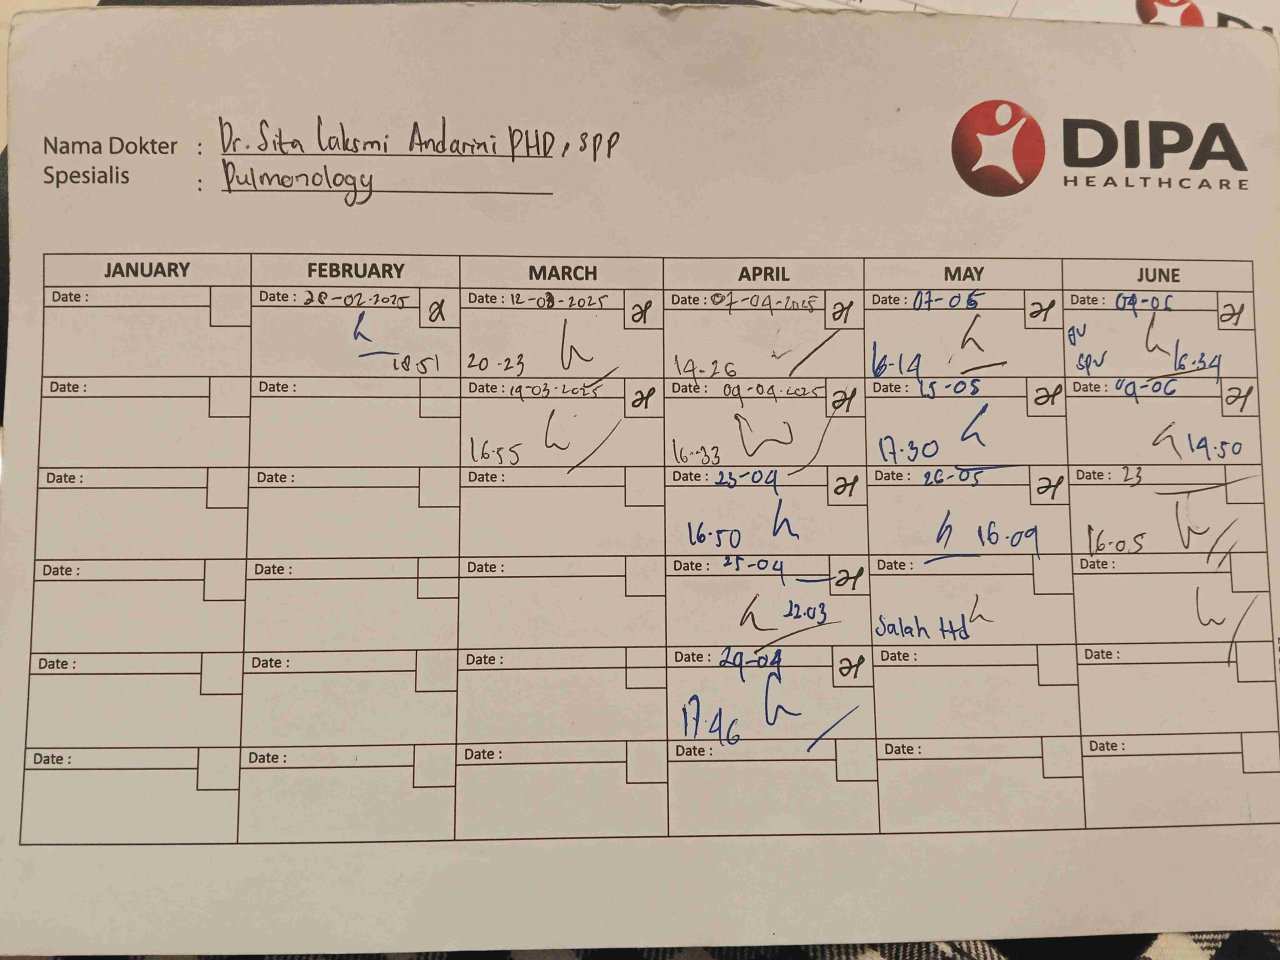 DIPA
HEALTHCARE
Nama Dokter : Dr. Sita Laksmi Andarini PHD, SPP
Spesialis : Pulmonology
JANUARY FEBRUARY MARCH APRIL MAY JUNE
Date : Date : 28-02-2025 Date : 12-03-2025 Date : 07-04-2025 Date : 07-05 Date : 04-06
18.51 20-23 14-26 16-14 spv 16.34
Date : Date : Date : 19-03-2025 Date : 09-04-2025 Date : 15-05 Date : 09-06
16.55 16-33 17.30 14.50
Date : Date : Date : Date : 23-04 Date : 26-05 Date : 23
16.50 16.09 16.05
Date : Date : Date : Date : 25-04 Date : Date :
22.03 Salah ttd
Date : Date : Date : Date : 29-04 Date : Date :
17.46
Date : Date : Date : Date : Date : Date :